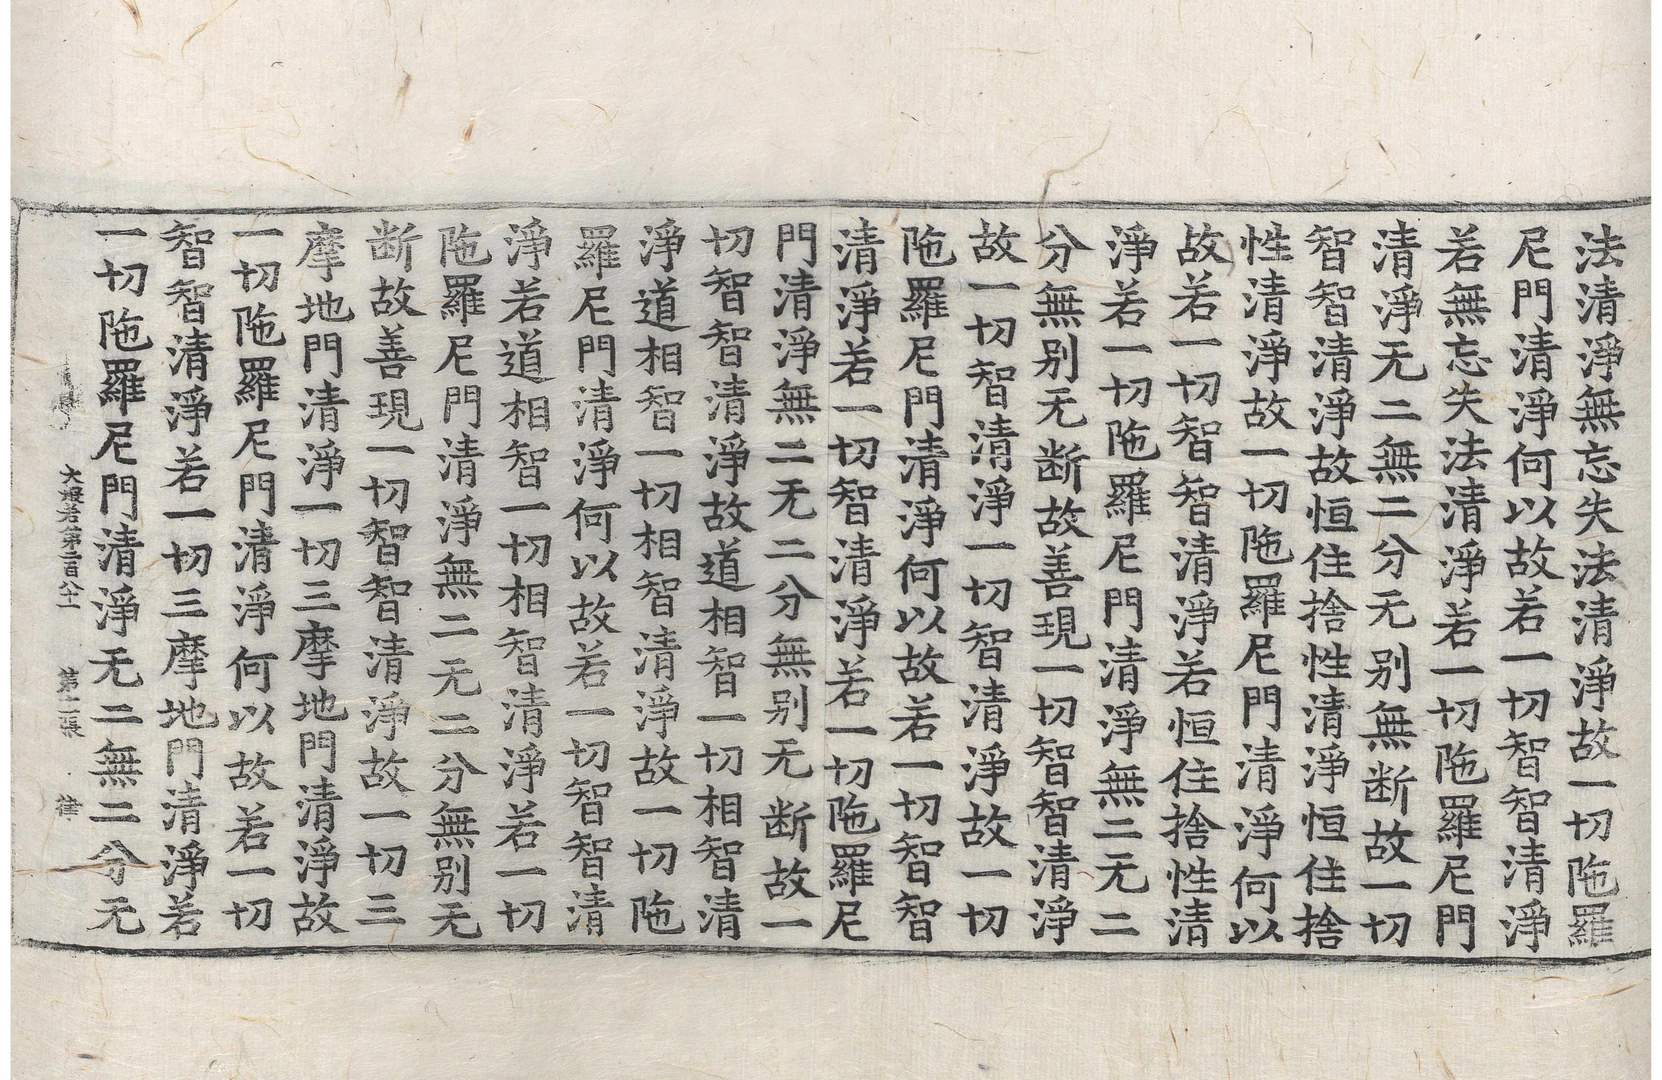 法清淨無忘失法清淨故一切陁羅
尼門清淨何以故若一切智智清淨
若無忘失法清淨若一切陁羅尼門
清淨无二無二分无别無断故一切
智智清淨故恒住捨性清淨恒住捨
性清淨故一切陁羅尼門清淨何以
故若一切智智清淨若恒住捨性清
淨若一切陁羅尼門清淨無二无二
分無别无断故善現一切智智清淨
故一切智清淨一切智清淨故一切
陁羅尼門清淨何以故若一切智智
清淨若一切智清淨若一切陁羅尼
門清淨無二无二分無别无断故一
切智智清淨故道相智一切相智清
淨道相智一切相智清淨故一切陁
羅尼門清淨何以故若一切智智清
淨若道相智一切相智清淨若一切
陁羅尼門清淨無二无二分無别无
断故善現一切智智清淨故一切三
摩地門清淨一切三摩地門清淨故
一切陁羅尼門清淨何以故若一切
智智清淨若一切三摩地門清淨若
一切陁羅尼門清淨无二無二分无
大般若第二百八十 第十二張 律